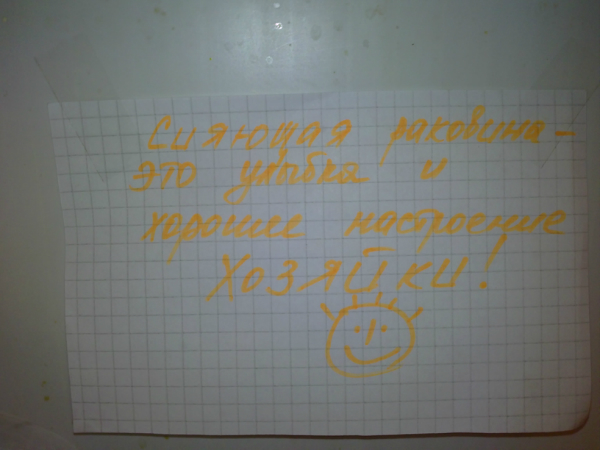 Сияющая раковина -
это улыбка и
хорошее настроение
Хозяйки!